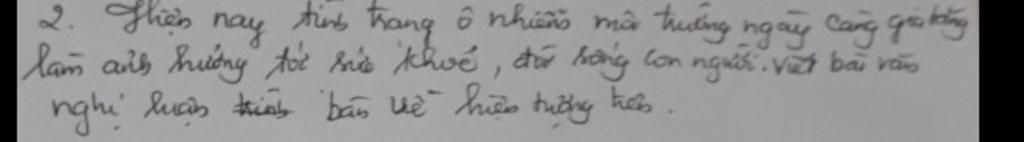 2. Hiện nay tình trạng ô nhiễm môi trường ngày càng gia tăng
làm ảnh hưởng tới sức khoẻ, đời sống con người. Viết bài văn
nghị luận bàn về hiện tượng trên.